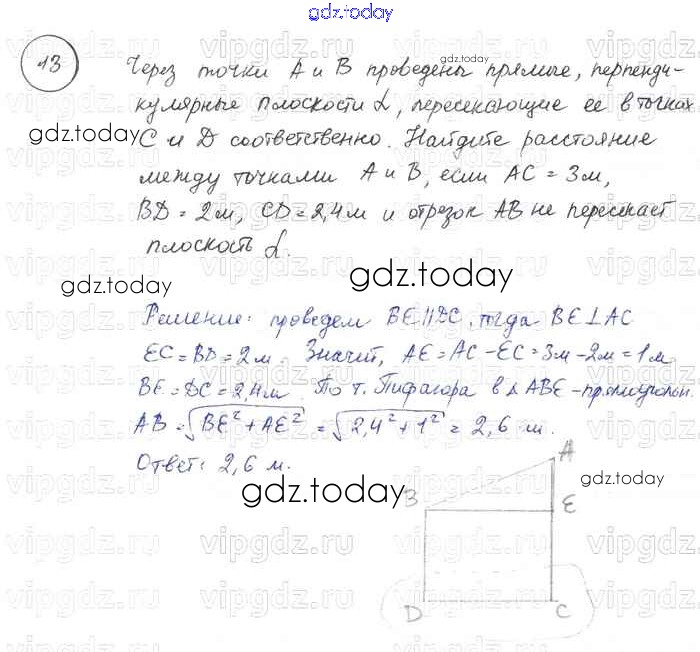 gdz.today
13
Через точки A и B проведены прямые, перпенди-
кулярные плоскости α, пересекающие ее в точках
C и D соответственно. Найдите расстояние
между точками A и B, если AC = 3м,
BD = 2м, CD = 2,4м и отрезок AB не пересекает
плоскость α.
gdz.today
gdz.today
gdz.today
gdz.today
Решение: проведем BE||DC, тогда BE⊥AC
EC=BD=2м. Значит, AE=AC-EC=3м-2м=1м
BE=DC=2,4м. По т. Пифагора в △ABE-прямоугольн.
AB=√BE²+AE² = √2,4²+1² = 2,6 м.
Ответ: 2,6 м.
gdz.today
gdz.today
A
B
E
D
C
vipgdz.ru